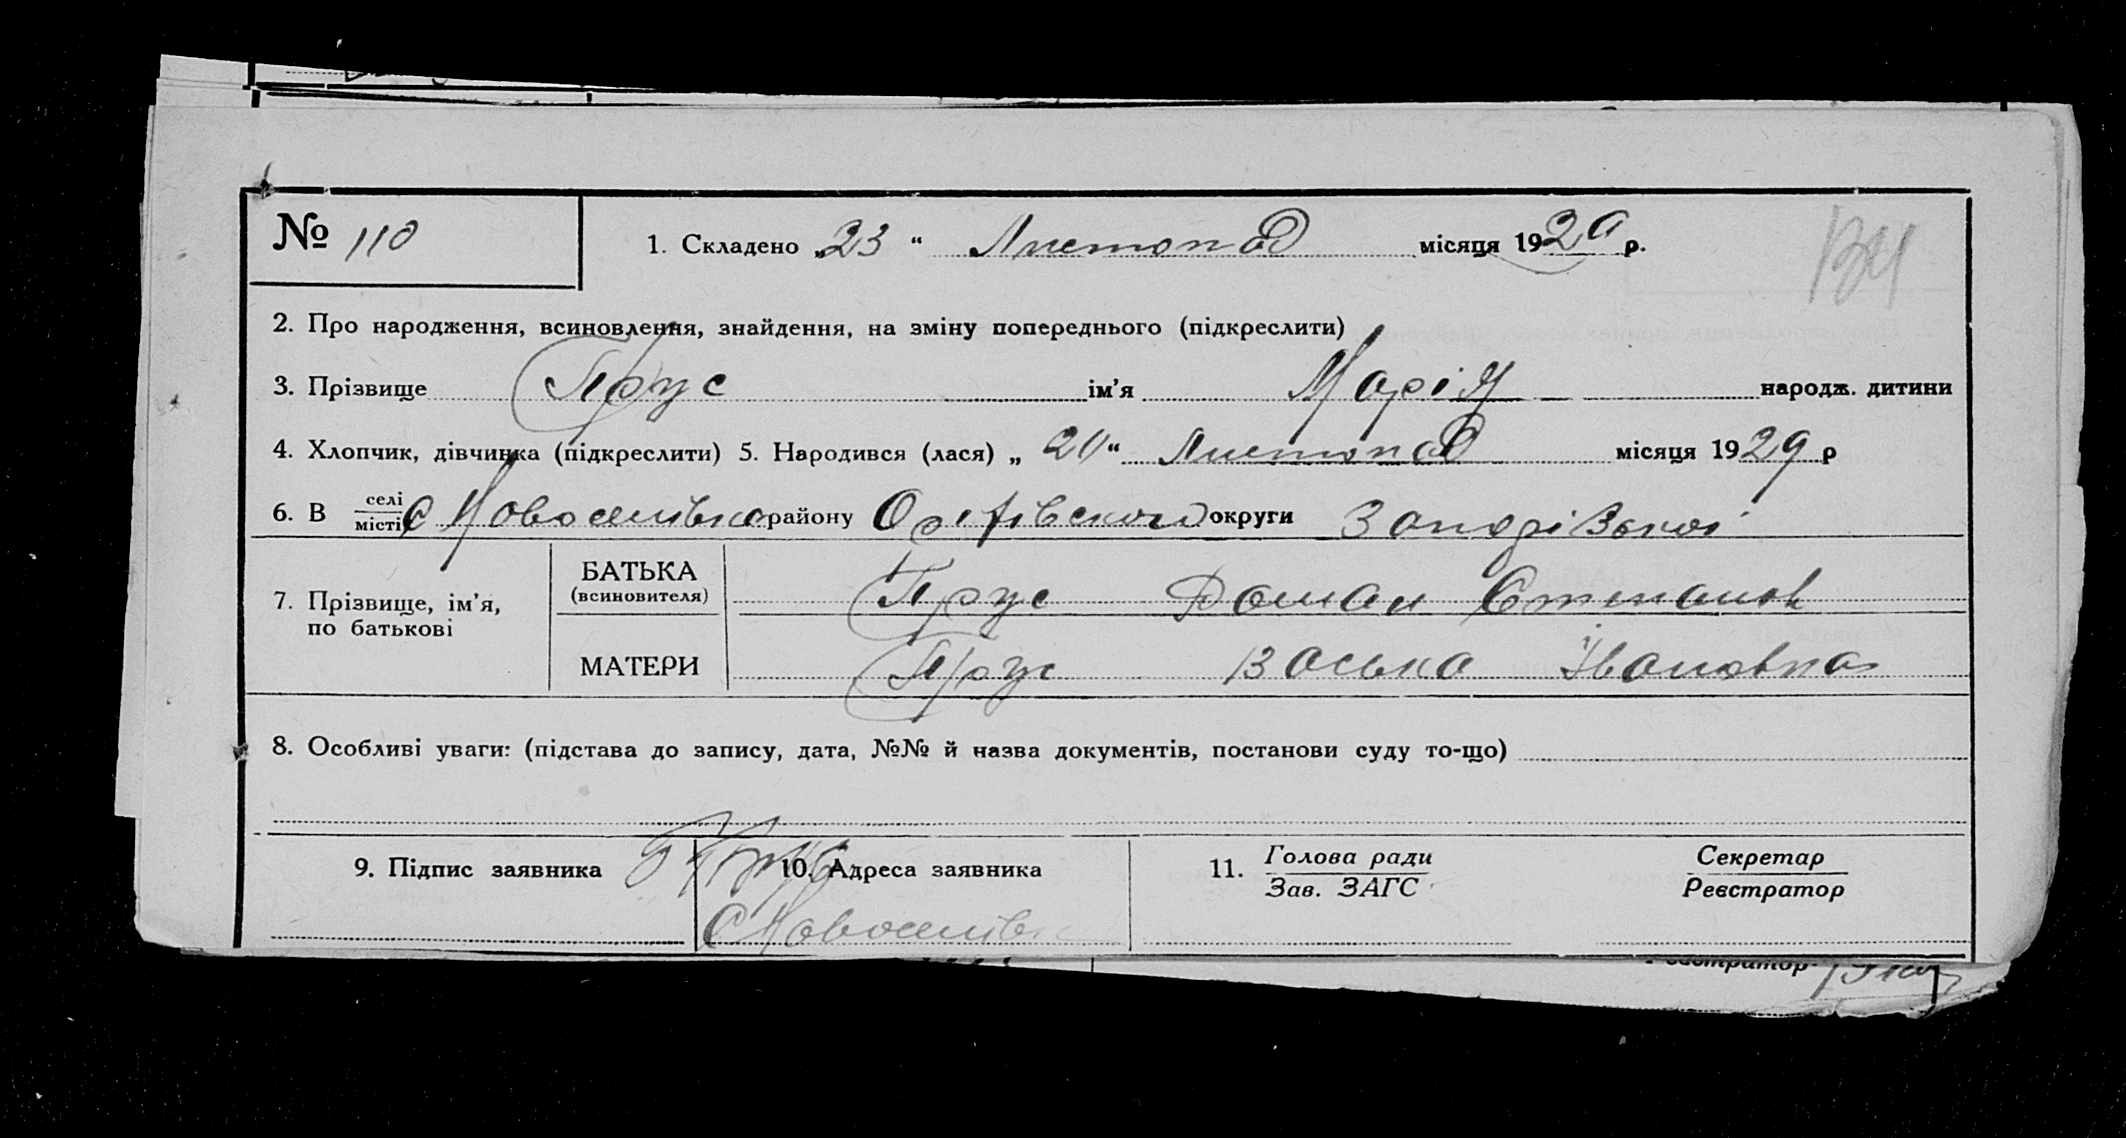 № 110
1. Складено „23“ Листопад місяця 1929 р.
2. Про народження, всиновлення, знайдення, на зміну попереднього (підкреслити)
3. Прізвище Прус ім’я Марія народж. дитини
4. Хлопчик, дівчинка (підкреслити) 5. Народився (лася) „ 20“ Листопад місяця 1929 р
6. В селі/місті с Новоселівка району Оріхівского округи Запорізької
7. Прізвище, ім’я, по батькові
БАТЬКА (всиновителя) Прус Роман Степанов
МАТЕРИ Прус Ївановна
8. Особливі уваги: (підстава до запису, дата, №№ й назва документів, постанови суду то-що)
9. Підпис заявника Прус 10. Адреса заявника 11. Голова ради Секретар
Зав. ЗАГС Реєстратор
С Новоселівка
Реєстратор